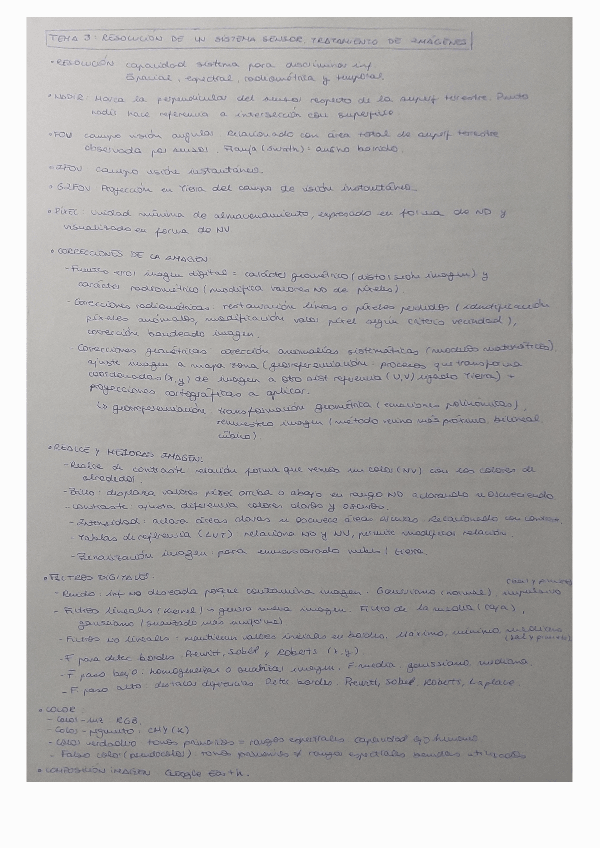 TEMA 3: RESOLUCIÓN DE UN SISTEMA SENSOR. TRATAMIENTO DE IMÁGENES
• RESOLUCIÓN capacidad sistema para discriminar inf.
Espacial, espectral, radiométrica y temporal.
• NADIR: Marca la perpendicular del sensor respecto de la superf terrestre. Punto
nadir hace referencia a intersección con superficie.
• FOV campo visión angular relacionado con área total de superf terrestre
observada por sensor. Franja (swath) = ancho barrido.
• IFOV campo visión instantáneo.
• GIFOV Proyección en Tierra del campo de visión instantáneo.
• PIXEL unidad mínima de almacenamiento, expresado en forma de ND y
visualizado en forma de NV
• CORRECCIONES DE LA IMAGEN
- Fuentes error imagen digital = carácter geométrico (distorsión imagen) y
carácter radiométrico (modifica valores ND de píxeles)
- Correcciones radiométricas: restauración líneas o píxeles perdidos (identificación
píxeles anómalos, modificación valor píxel según criterio vecindad),
corrección bandeado imagen.
- Correcciones geométricas corrección anomalías sistemáticas (modelos matemáticos),
ajuste imagen a mapa zona (georreferenciación: procesos que transforma
coordenadas (x,y) de imagen a otro sist referencia (U,V) ligado Tierra) +
proyecciones cartográficas a aplicar.
↳ georreferenciación: transformación geométrica (ecuaciones polinómicas),
remuestreo imagen (método vecino más próximo, bilineal,
cúbico)
• REALCE Y MEJORAS IMAGEN:
- Realce de contraste relación forma que vemos un color (NV) con los colores de
alrededor.
- Brillo: desplaza valores píxel arriba o abajo en rango ND aclarando u oscureciendo.
- Contraste ajusta diferencia colores claros y oscuros.
- Intensidad: aclara áreas claras u oscurece áreas oscuras. Relacionado con contraste.
- Tablas de referencia (LUT) relaciono ND y NV, permite modificar relación.
- Binarización imagen: para enmascarado nubes / tierra.
• FILTROS DIGITALES:
- Ruido: inf no deseada porque contamina imagen. Gaussiano (normal), impulsivo
- Filtros lineales (Kernel) → genero nueva imagen. Filtro de la media (caja),
gaussiano (suavizado más uniforme)
- Filtros no lineales: mantienen valores lineales en bordes, Máximo, mínimo, mediana
(sal y pimienta)
- F para detec bordes: Prewitt, Sobel y Roberts (x,y).
- F paso bajo: homogeneizar o suavizar imagen. F media, gaussiano, mediana.
- F paso alto: destaca diferencias. Detec bordes. Prewitt, Sobel, Roberts, Laplace.
• COLOR:
- Color-luz RGB.
- Color-pigmento: CMY(K)
- Color verdadero tonos primarios = rangos espectrales capacidad ojo humano
- Falso color (pseudocolor) tonos primarios ≠ rangos espectrales bandas
• COMPOSICIÓN IMAGEN Google Earth.